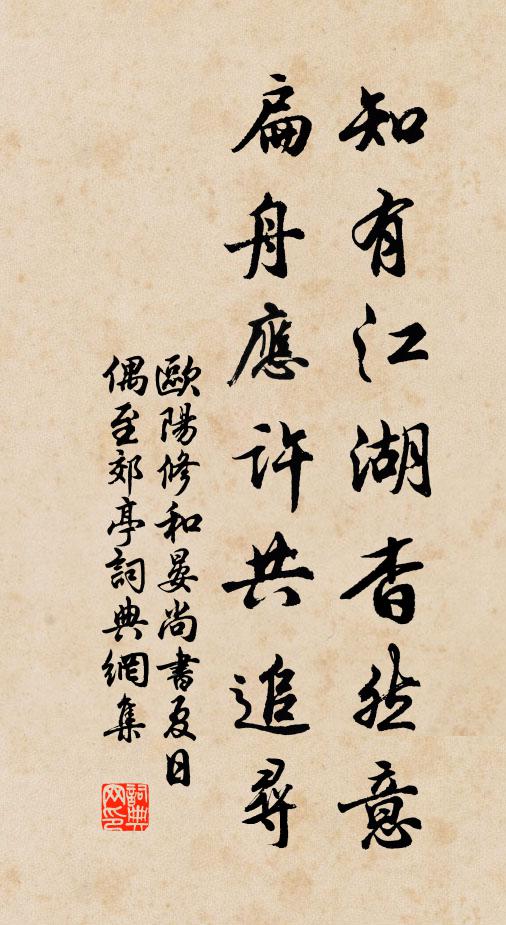 知有江湖杳然意
扁舟應許共追尋
歐陽修和晏尚書夏日
偶至郊亭詞典網集
詞典
网印